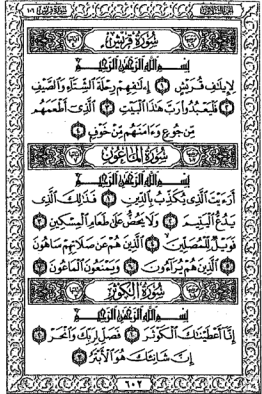 سُورَةُ قُرَيْشٍ
بِسْمِ اللَّهِ الرَّحْمَٰنِ الرَّحِيمِ
لِإِيلَافِ قُرَيْشٍ ١ إِيلَافِهِمْ رِحْلَةَ الشِّتَاءِ وَالصَّيْفِ
٢ فَلْيَعْبُدُوا رَبَّ هَٰذَا الْبَيْتِ ٣ الَّذِي أَطْعَمَهُم
مِّن جُوعٍ وَءَامَنَهُم مِّنْ خَوْفٍ ٤
سُورَةُ الْمَاعُونِ
بِسْمِ اللَّهِ الرَّحْمَٰنِ الرَّحِيمِ
أَرَءَيْتَ الَّذِي يُكَذِّبُ بِالدِّينِ ١ فَذَٰلِكَ الَّذِي
يَدُعُّ الْيَتِيمَ ٢ وَلَا يَحُضُّ عَلَىٰ طَعَامِ الْمِسْكِينِ ٣
فَوَيْلٌ لِّلْمُصَلِّينَ ٤ الَّذِينَ هُمْ عَن صَلَاتِهِمْ سَاهُونَ
٥ الَّذِينَ هُمْ يُرَاءُونَ ٦ وَيَمْنَعُونَ الْمَاعُونَ ٧
سُورَةُ الْكَوْثَرِ
بِسْمِ اللَّهِ الرَّحْمَٰنِ الرَّحِيمِ
إِنَّا أَعْطَيْنَاكَ الْكَوْثَرَ ١ فَصَلِّ لِرَبِّكَ وَانْحَرْ ٢
إِنَّ شَانِئَكَ هُوَ الْأَبْتَرُ ٣
٦٠٢